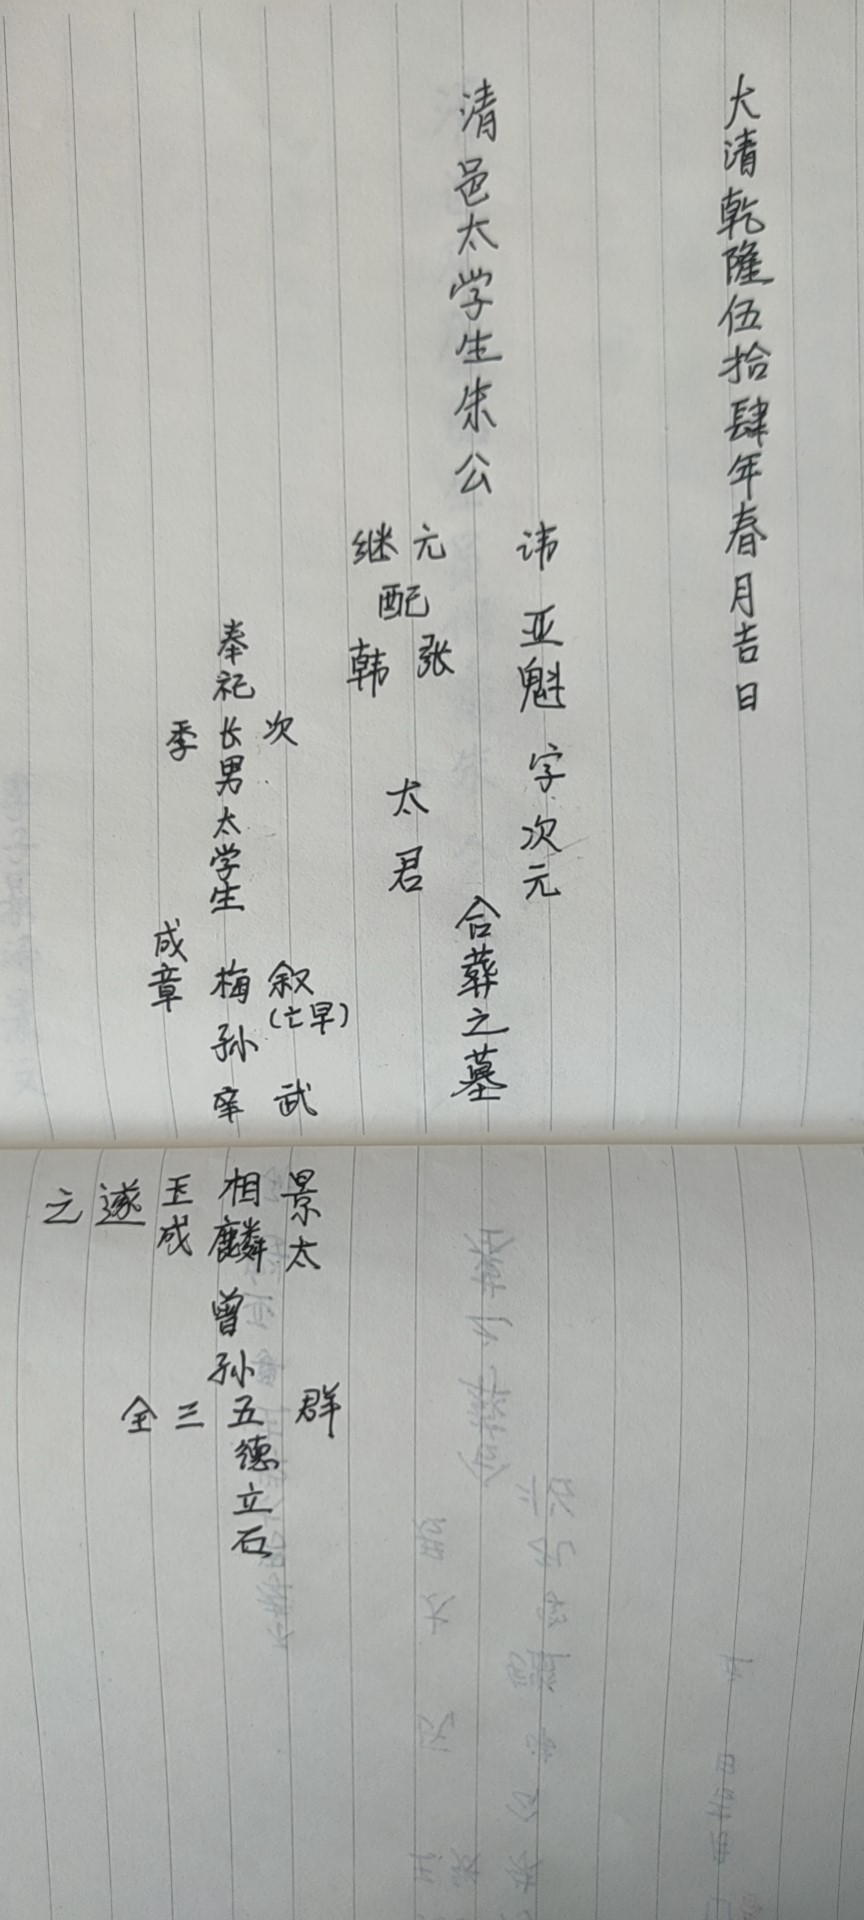 大清乾隆伍拾肆年春月吉日
清邑太学生朱公
讳亚魁字次元
元 张
继 韩
配
太君
合葬之墓
奉祀
次 叙(亡早)
长男太学生梅
季 成章
孙
武 景太
宰 相麟
玉成
遂
之
曾孙
群
五德立石
三
全